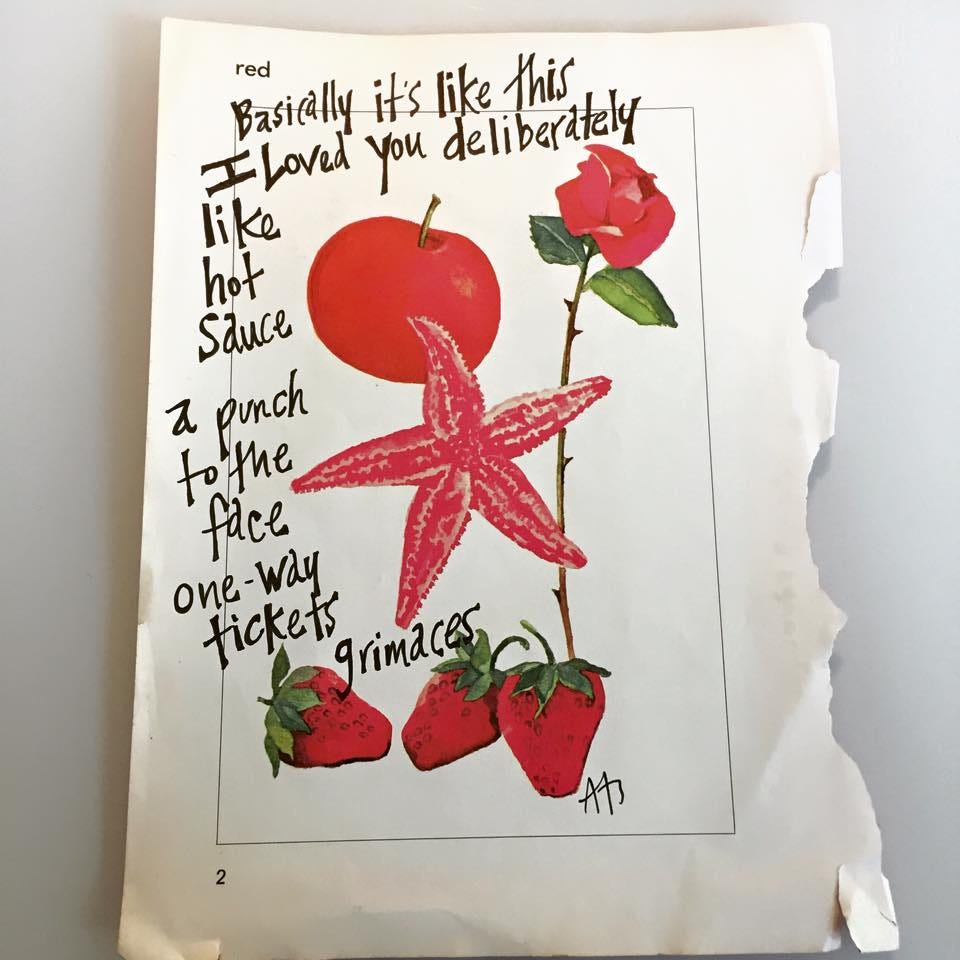 red
Basically it's like this
I Loved you deliberately
like
hot
sauce
a punch
to the
face
one-way
tickets
grimaces
2